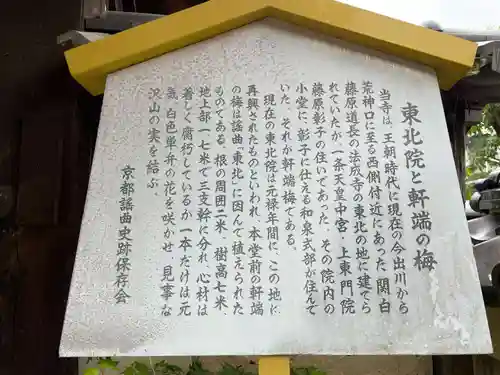 東北院と軒端の梅
当寺は、王朝時代に現在の今出川から
荒神口に至る西側付近にあった関白
藤原道長の「法成寺の東北の地に建てら
れていたが、一条天皇中宮・上東門院
藤原彰子の住いであった。その院内の
小堂に、彰子に仕える和泉式部が住んで
いた。それが軒端梅である。
現在の東北院は元禄年間に、この地に
再興されたものといわれ、本堂前の軒端
の梅は謡曲「東北」に因んで植えられた
ものである。根の周囲二米、樹高七米、
地上部一七米で三支幹に分れ、心材は
著しく腐朽しているか一本だけは元
気、白色単弁の花を咲かせ、見事な
沢山の実を結ぶ。
京都謡曲史跡保存会